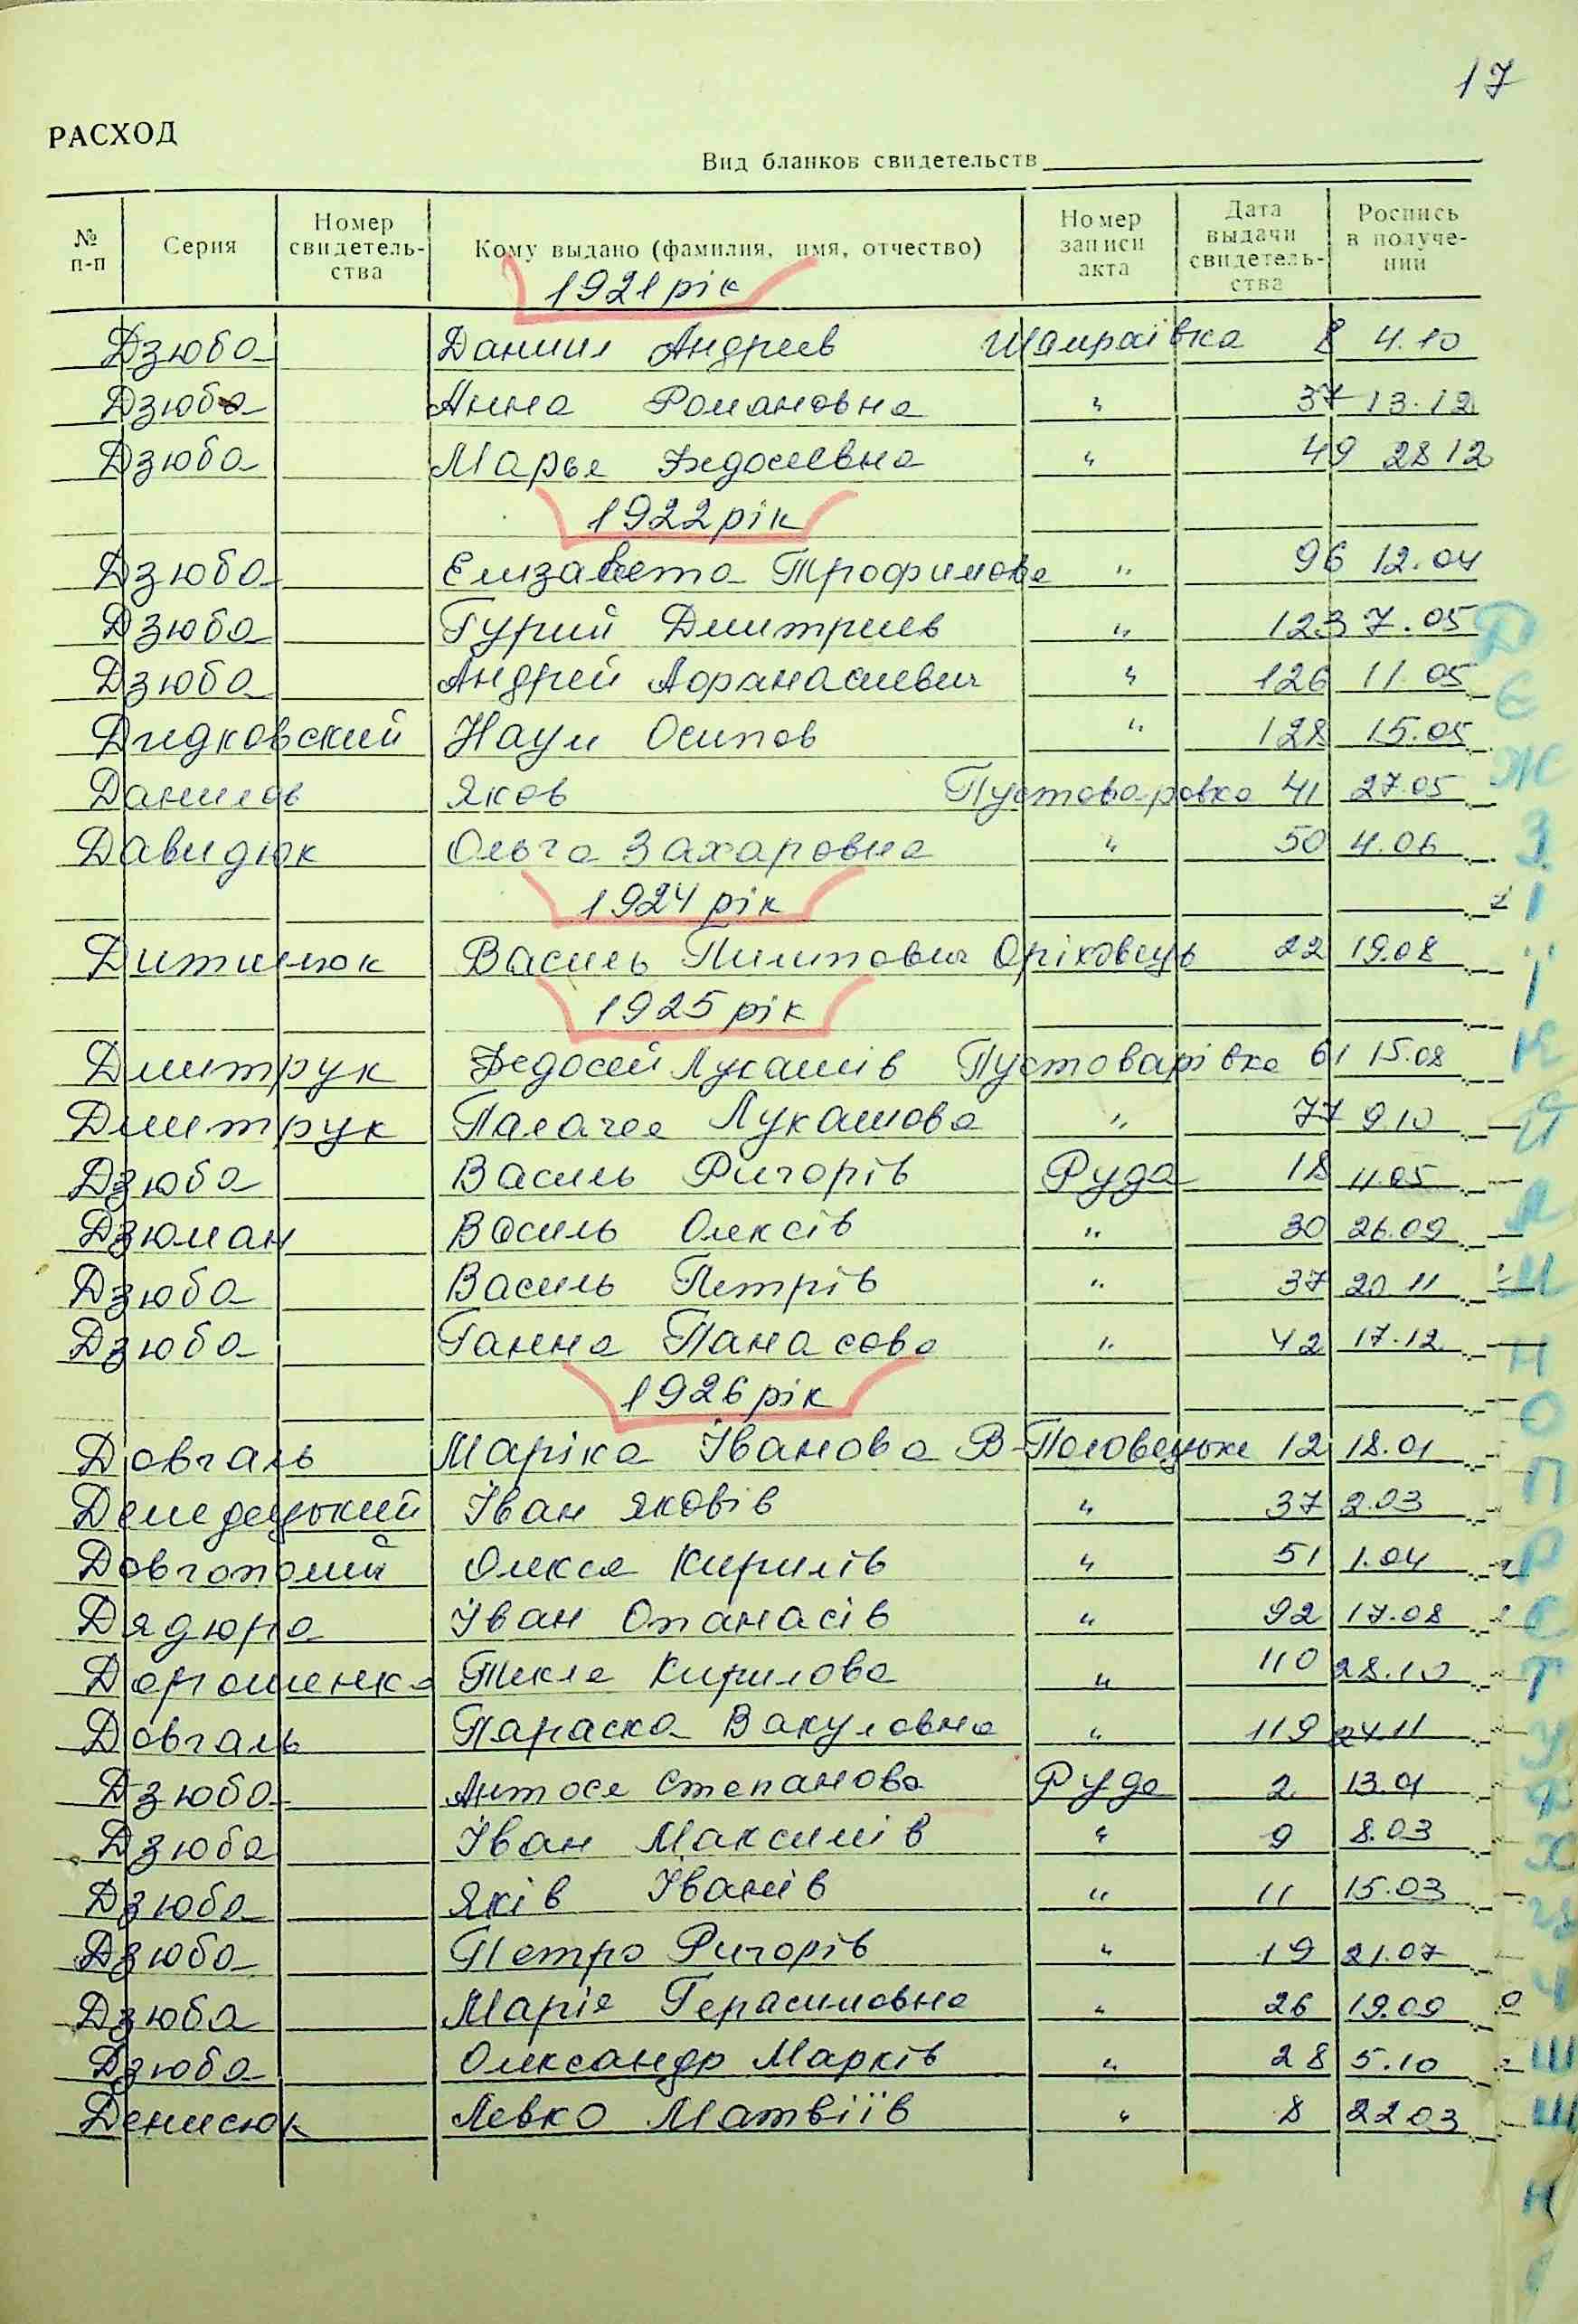 17
РАСХОД
Вид бланков свидетельств
№ п-п Серия Номер свидетель-ства Кому выдано (фамилия, имя, отчество) Номер записи акта Дата выдачи свидетель-ства Роспись в получе-нии
1921 рік
Дзюба Даниил Андреев Шамраївка 8 4.10
Дзюба Анна Романовна " 37 13.12
Дзюба Марья Федосеевна " 49 28 12
1922 рік
Дзюба Елизавета Трофимова " 96 12.04
Дзюба Гурий Дмитриев " 123 7.05
Дзюба Андрей Афанасиевич " 126 11.05
Дидковский Наум Осипов " 128 15.05
Данилов Яков Пустоваровка 41 27.05
Давидюк Ольга Захаровна " 50 4.06
1924 рік
Дитинюк Василь Пилипович Оріховець 22 19.08
1925 рік
Дмитрук Федосей Лукашів Пустоварівка 61 15.08
Дмитрук Палагея Лукашова " 77 9.10
Дзюба Василь Ригорів Руда 18 4.05
Дзюман Василь Олексів " 30 26.09
Дзюба Василь Петрів " 37 20.11
Дзюба Ганна Панасова " 42 17.12
1926 рік
Довгаль Маріка Іванова В-Половецьке 12 18.01
Демедецький Іван Яковів " 37 2.03
Довгополий Олекса Кирилів " 51 1.04
Дядюра Іван Опанасів " 92 17.08
Дорошенко Текля Кирилова " 110 28.10
Довгаль Параска Вакуловна " 119 24.11
Дзюба Антося Степанова Руда 2 13.01
Дзюба Іван Максимів " 9 8.03
Дзюба Яків Іванів " 11 15.03
Дзюба Петро Ригорів " 19 21.07
Дзюба Марія Герасимовна " 26 19.09
Дзюба Олександр Марків " 28 5.10
Денисюк Левко Матвіїв " 8 22 03
Д
Є
Ж
З
І
Ї
К
Й
Л
М
Н
О
П
Р
С
Т
У
Ф
Х
Ц
Ч
Ш
Щ